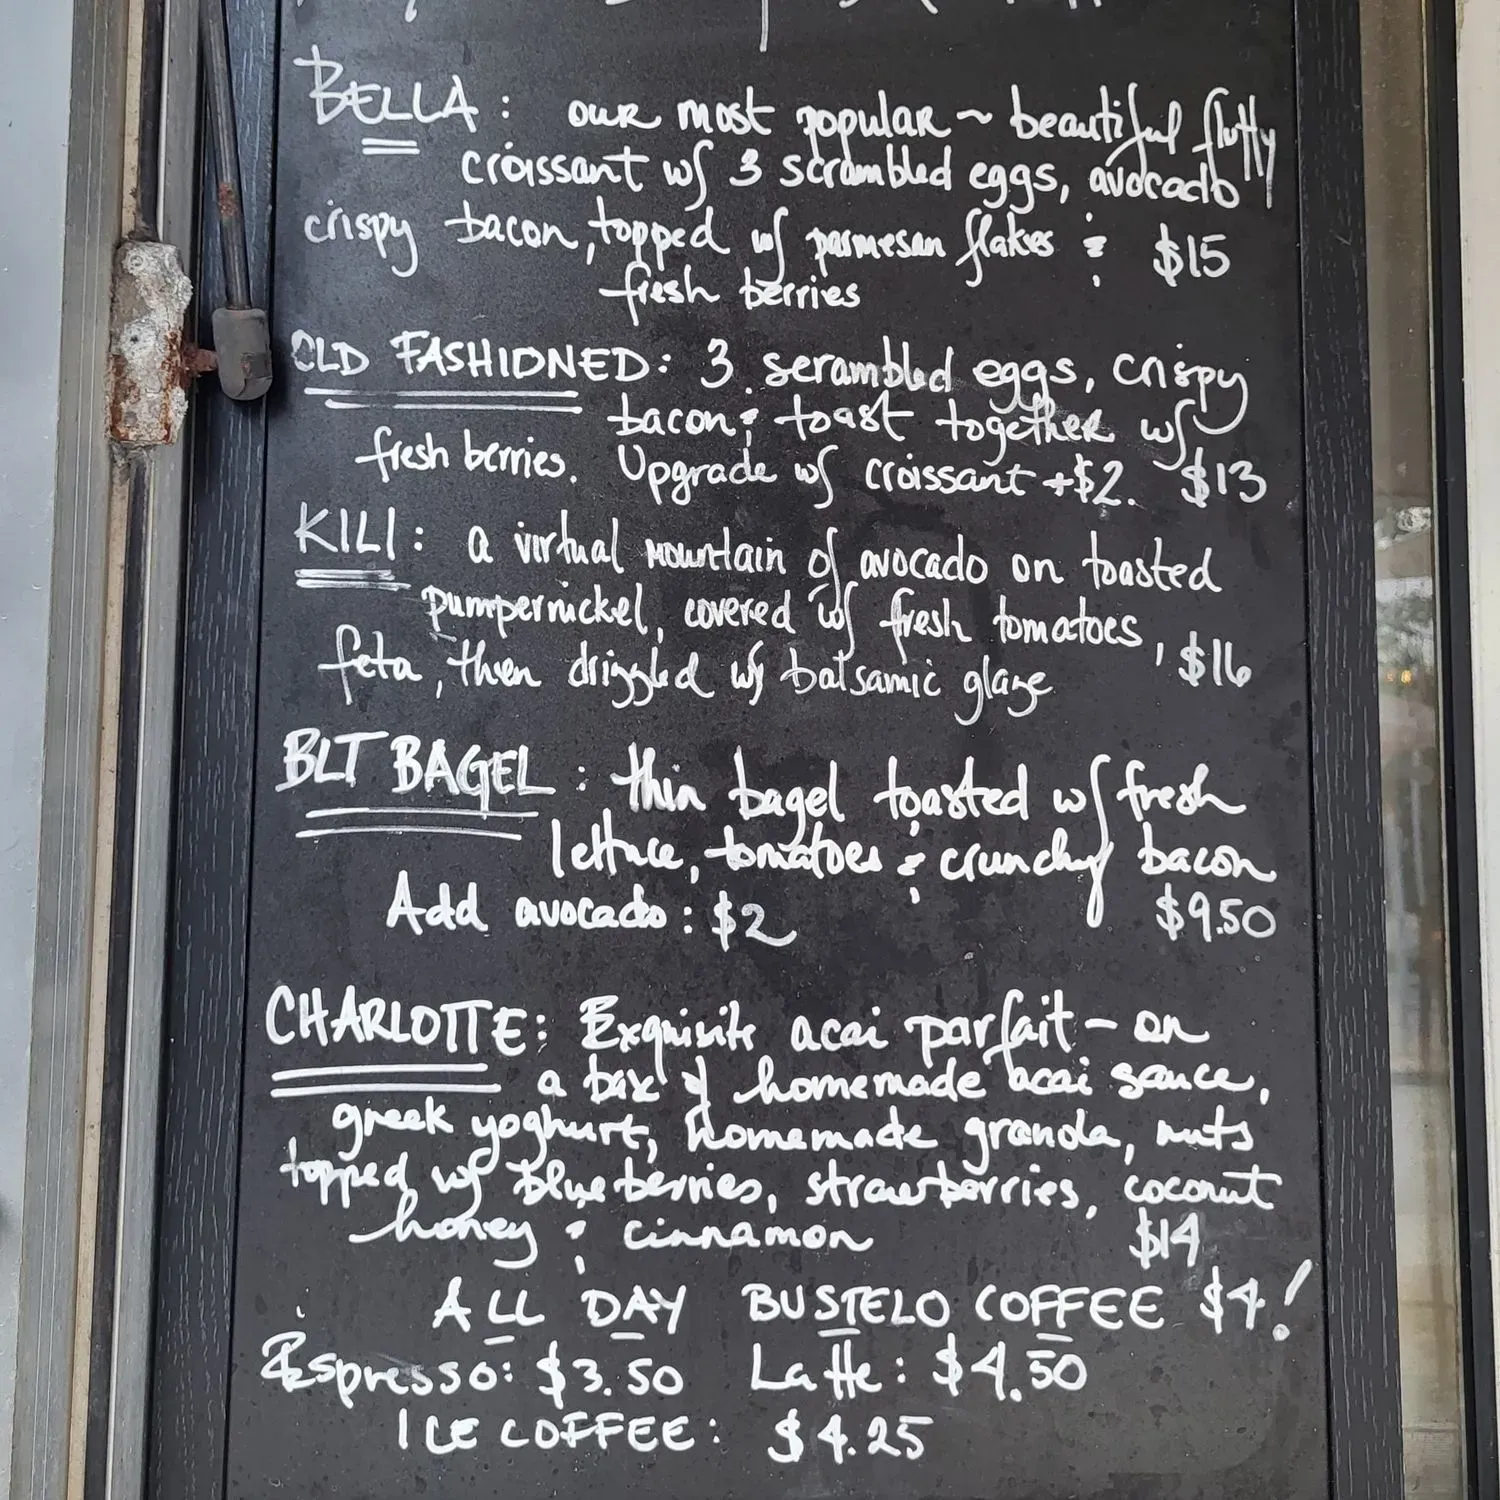 BELLA: our most popular ~ beautiful fluffy
croissant w/ 3 scrambled eggs, avocado
crispy bacon, topped w/ parmesan flakes & $15
fresh berries
OLD FASHIONED: 3 scrambled eggs, crispy
bacon & toast together w/
fresh berries. Upgrade w/ croissant +$2. $13
KILI: a virtual mountain of avocado on toasted
pumpernickel, covered w/ fresh tomatoes,
feta, then drizzled w/ balsamic glaze $16
BLT BAGEL: thin bagel toasted w/ fresh
lettuce, tomatoes & crunchy bacon
Add avocado: $2 $9.50
CHARLOTTE: Exquisite acai parfait - on
a base of homemade acai sauce,
greek yoghurt, homemade granola, nuts
topped w/ blueberries, strawberries, coconut
honey & cinnamon $14
ALL DAY BUSTELO COFFEE $4!
Espresso: $3.50 Latte: $4.50
ICE COFFEE: $4.25